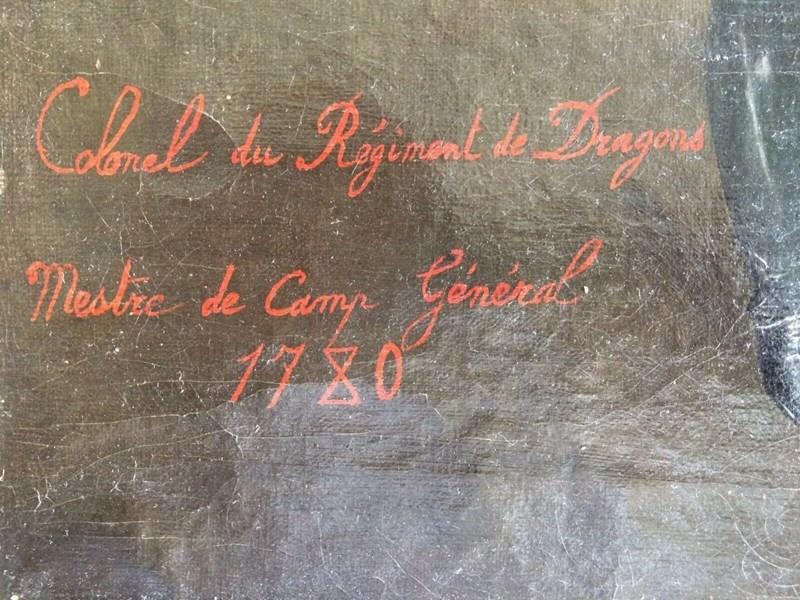 Colonel du Régiment de Dragons
Mestre de Camp Général
1780